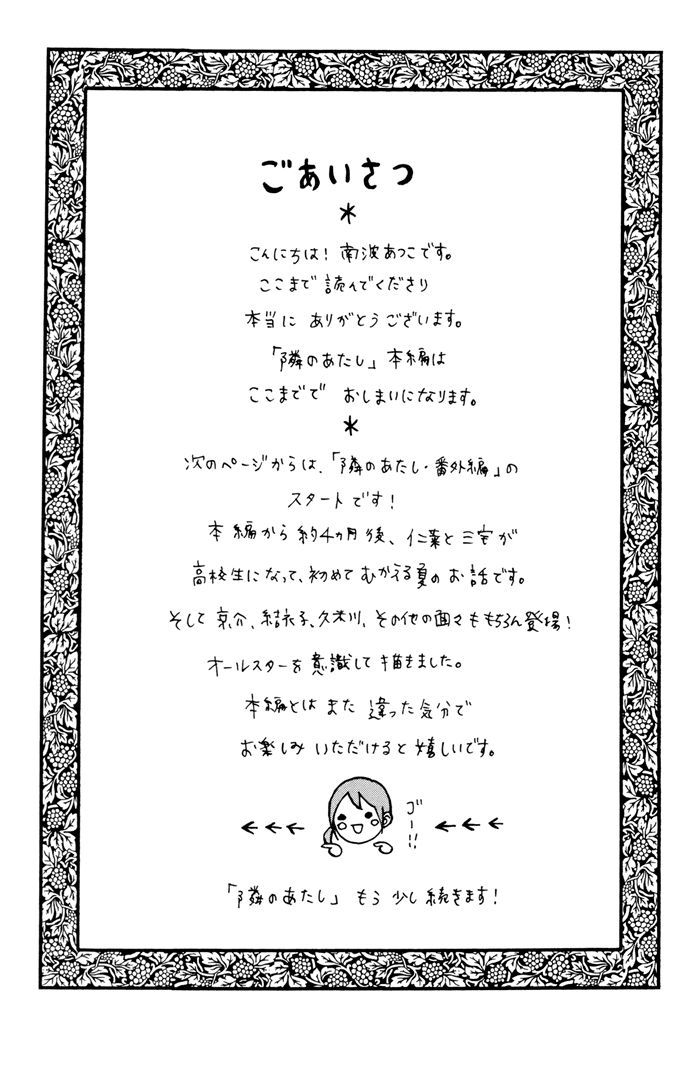 ごあいさつ
*
こんにちは! 南波あつこです。
ここまで読んでくださり
本当に ありがとうございます。
「隣のあたし」本編は
ここまでで おしまいになります。
*
次のページからは、「隣のあたし・番外編」の
スタートです!
本編から約4ヵ月後、仁菜と三宅が
高校生になって、初めてむかえる夏のお話です。
そして京介、結衣子、久米川、その他の面々ももちろん登場!
オールスターを意識して描きました。
本編とはまた違った気分で
お楽しみいただけると嬉しいです。
←←← ゴー!! ←←←
「隣のあたし」もう少し続きます!